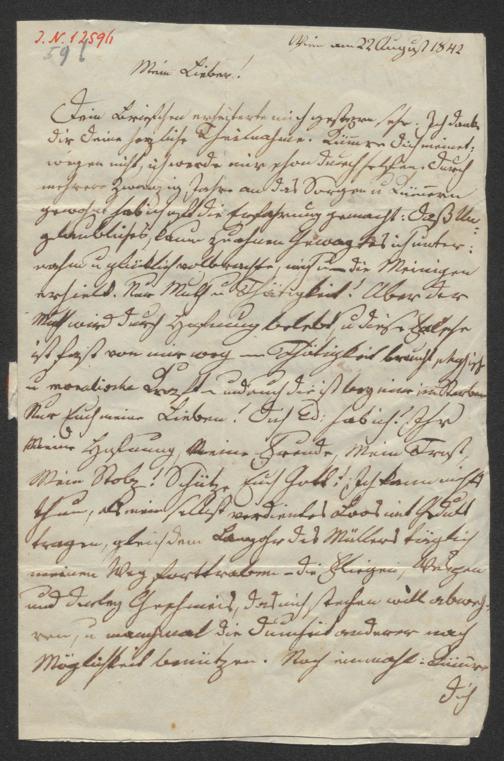 J. N. 12596
596
Wien am 22 August 1842
Mein Lieber!
Dein Briefchen erheiterte mich gestern sehr. Ich danke
dir deine herzliche Theilnahme. Kümre dich meinet-
wegen nicht, ich werde mir schon durchhelfen. Durch
mehrere zwanzig Jahre an das Sorgen u Kümern
gewohnt hab ich oft die Erfahrung gemacht: daß Un-
glaubliches, kaum zu ahnen Gewagtes ich unter-
nahm u glücklich vollbrachte, mich u die Meinigen
erhielt. Nur Muth u Thätigkeit! Aber der
Muth wird durch Hofnung belebt, u diese
ist fast von mir weg — Thätigkeit braucht
u moralische Kraft — und auch die ist bey mir im
Nur Euch meine Lieben! Dich Ed: hab ich! Ihr
Meine Hofnung, Meine Freude, Mein Trost,
Mein Stolz! Schütze Euch Gott! Ich kann nichts
thun, als mein selbst verdientes Loos mit Geduld
tragen, gleich dem Langohr des Müllers täglich
meinen Weg forttraben — die Fliegen, Wespen
und derley Geschmeis, das mich stechen will abweh-
ren, u manchmal die Dumheit anderer nach
Möglichkeit benützen. Noch einmahl: Kümre
dich